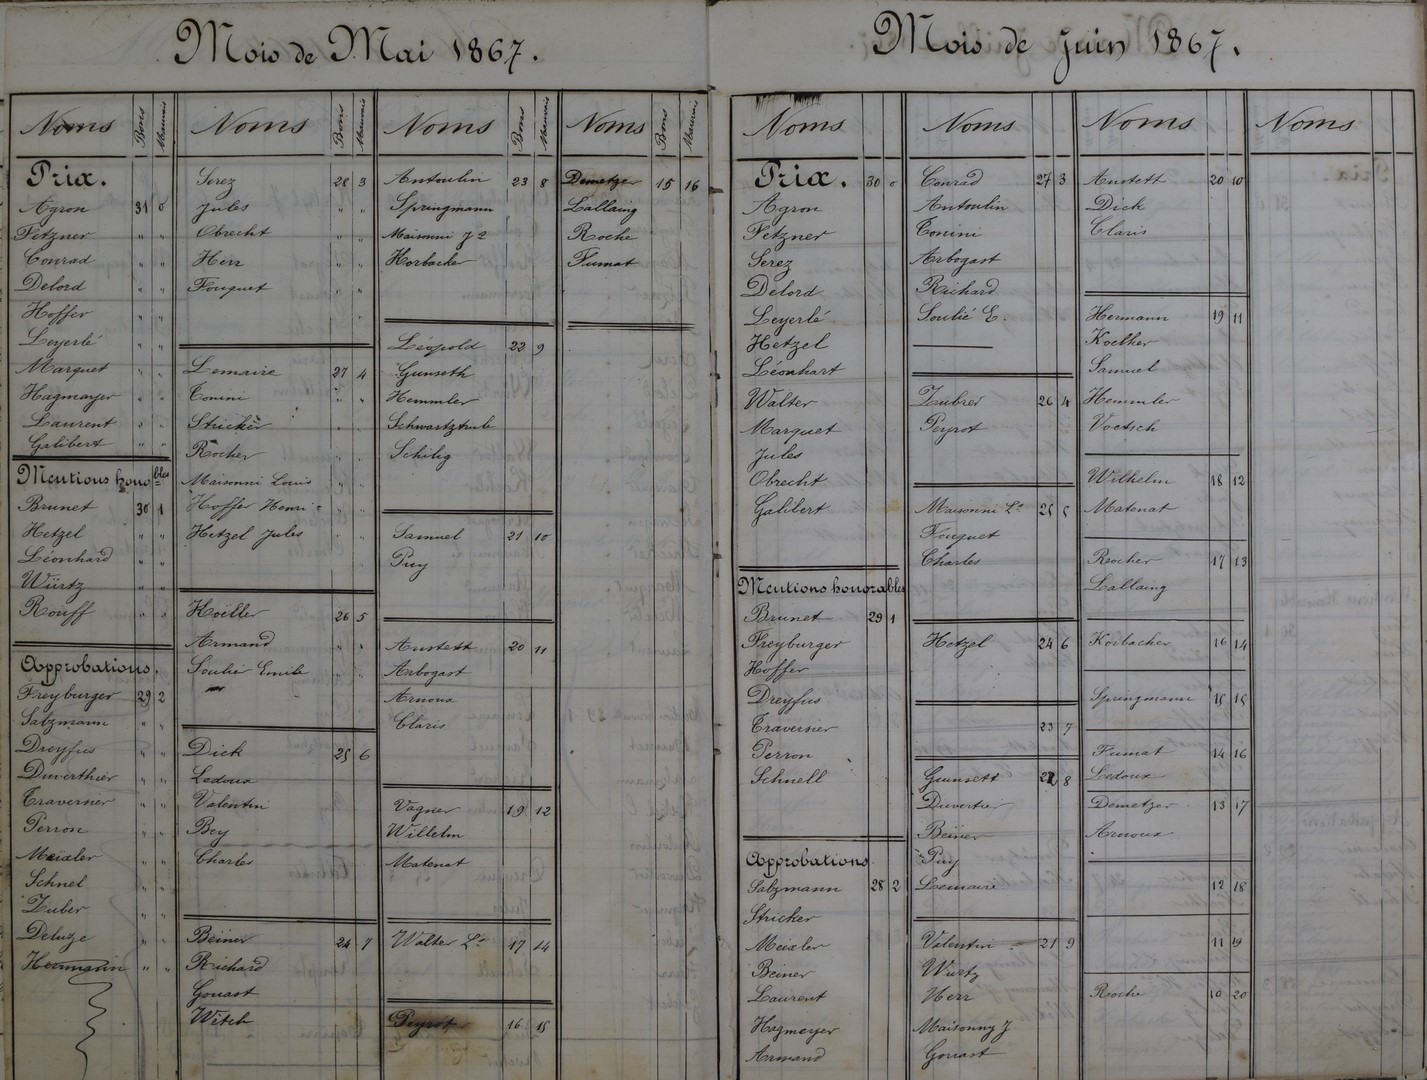 Mois de Mai 1867.
Noms Bons Mauvais
Prix.
Agron 31 0
Fetzner " "
Conrad " "
Delord " "
Hoffer " "
Leyerlé " "
Marquet " "
Hagmayer " "
Laurent " "
Galibert " "
Mentions honobles
Brunet 30 1
Hetzel " "
Léonhard " "
Würtz " "
Rouff " "
Approbations.
Freyburger 29 2
Salzmann " "
Dreyfus " "
Duverthier " "
Travernier " "
Perron " "
Meixler " "
Schnel " "
Zuber " "
Deluze " "
Hermann " "
Noms Bons Mauvais
Serez 28 3
Jules " "
Obrecht " "
Herr " "
Fouquet " "
Lemaire 27 4
Tonini " "
Stricker " "
Rocher " "
Maisonni Louis " "
Hoffer Henri " "
Hetzel Jules " "
Koeller 26 5
Armand " "
Soulié Emile " "
Dick 25 6
Ledoux
Valentin
Bey
Charles
Beiner 24 7
Richard
Gouast
Witch
Noms Bons Mauvais
Antoulin 23 8
Springmann
Maisonni Je
Horbacker
Léopold 22 9
Gunseth
Hemmler
Schwartztrub
Schilig
Samuel 21 10
Puy
Anstett 20 11
Arbogast
Arnoux
Claris
Vagner 19 12
Willelm
Matenat
Walter Ls 17 14
Peyrot 16 15
Noms Bons Mauvais
Demetzer 15 16
Lallaing
Roche
Fumat
Mois de Juin 1867.
Noms
Prix. 30 0
Agron
Fetzner
Serez
Delord
Leyerlé
Hetzel
Léonhart
Walter
Marquet
Jules
Obrecht
Galibert
Mentions honorables
Brunet 29 1
Freyburger
Hoffer
Dreyfus
Travernier
Perron
Schnell
Approbations
Salzmann 28 2
Stricker
Meixler
Beiner
Laurent
Hagmeyer
Armand
Noms
Conrad 27 3
Antoulin
Tonini
Arbogast
Richard
Soulié E.
Zubrer 26 4
Peyrot
Maisonni Ls 25 5
Fouquet
Charles
Hetzel 24 6
23 7
Gunsett 22 8
Duvertier
Beiner
Puy
Lemaire
Valentin 21 9
Wurtz
Herr
Maisonny J
Gouast
Noms
Anstett 20 10
Dick
Claris
Hermann 19 11
Koelher
Samuel
Hemmler
Voetsch
Wilhelm 18 12
Matenat
Rocher 17 13
Lallaing
Korbacher 16 14
Springmann 15 15
Fumat 14 16
Ledoux
Demetzer 13 17
Arnoux
12 18
11 19
Roche 10 20
Noms